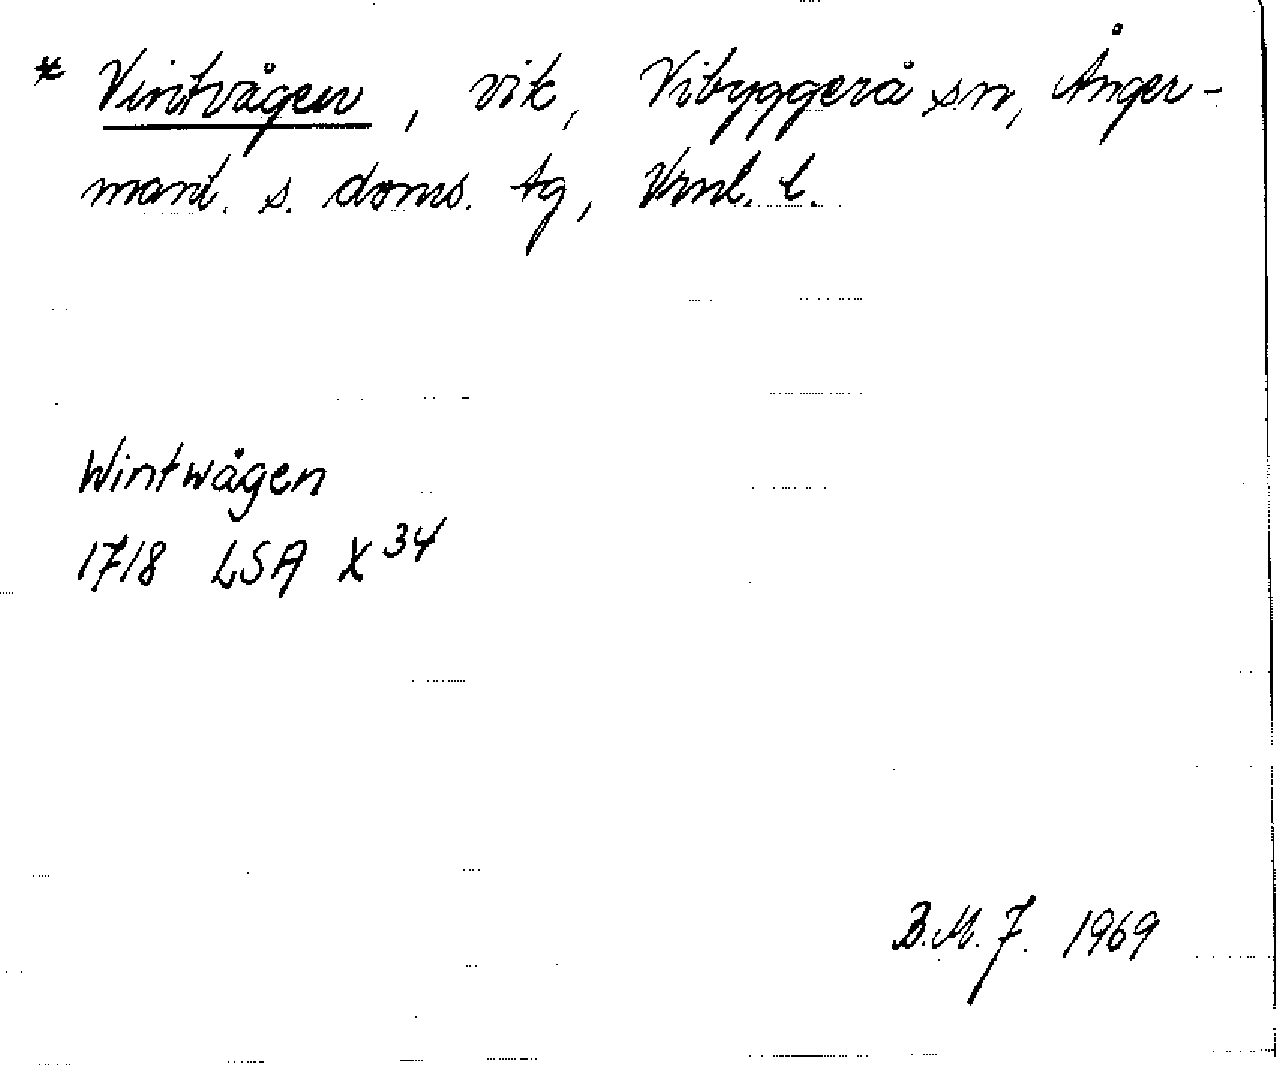 * Vintvågen, vik, Vibyggerå sn, Ånger-
manl. s. doms. tg, Vrnl. l.
Wintwågen
1718 LSA X 34
B.M.F. 1969